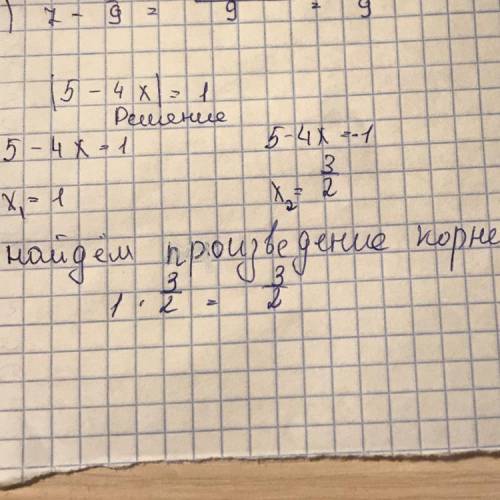 ) 7 - 9 = 9 = 9
|5 - 4x| = 1
Решение
5 - 4x = 1 5 - 4x = -1
x₁ = 1 x₂ = 3/2
найдём произведение корне
1 · 3/2 = 3/2